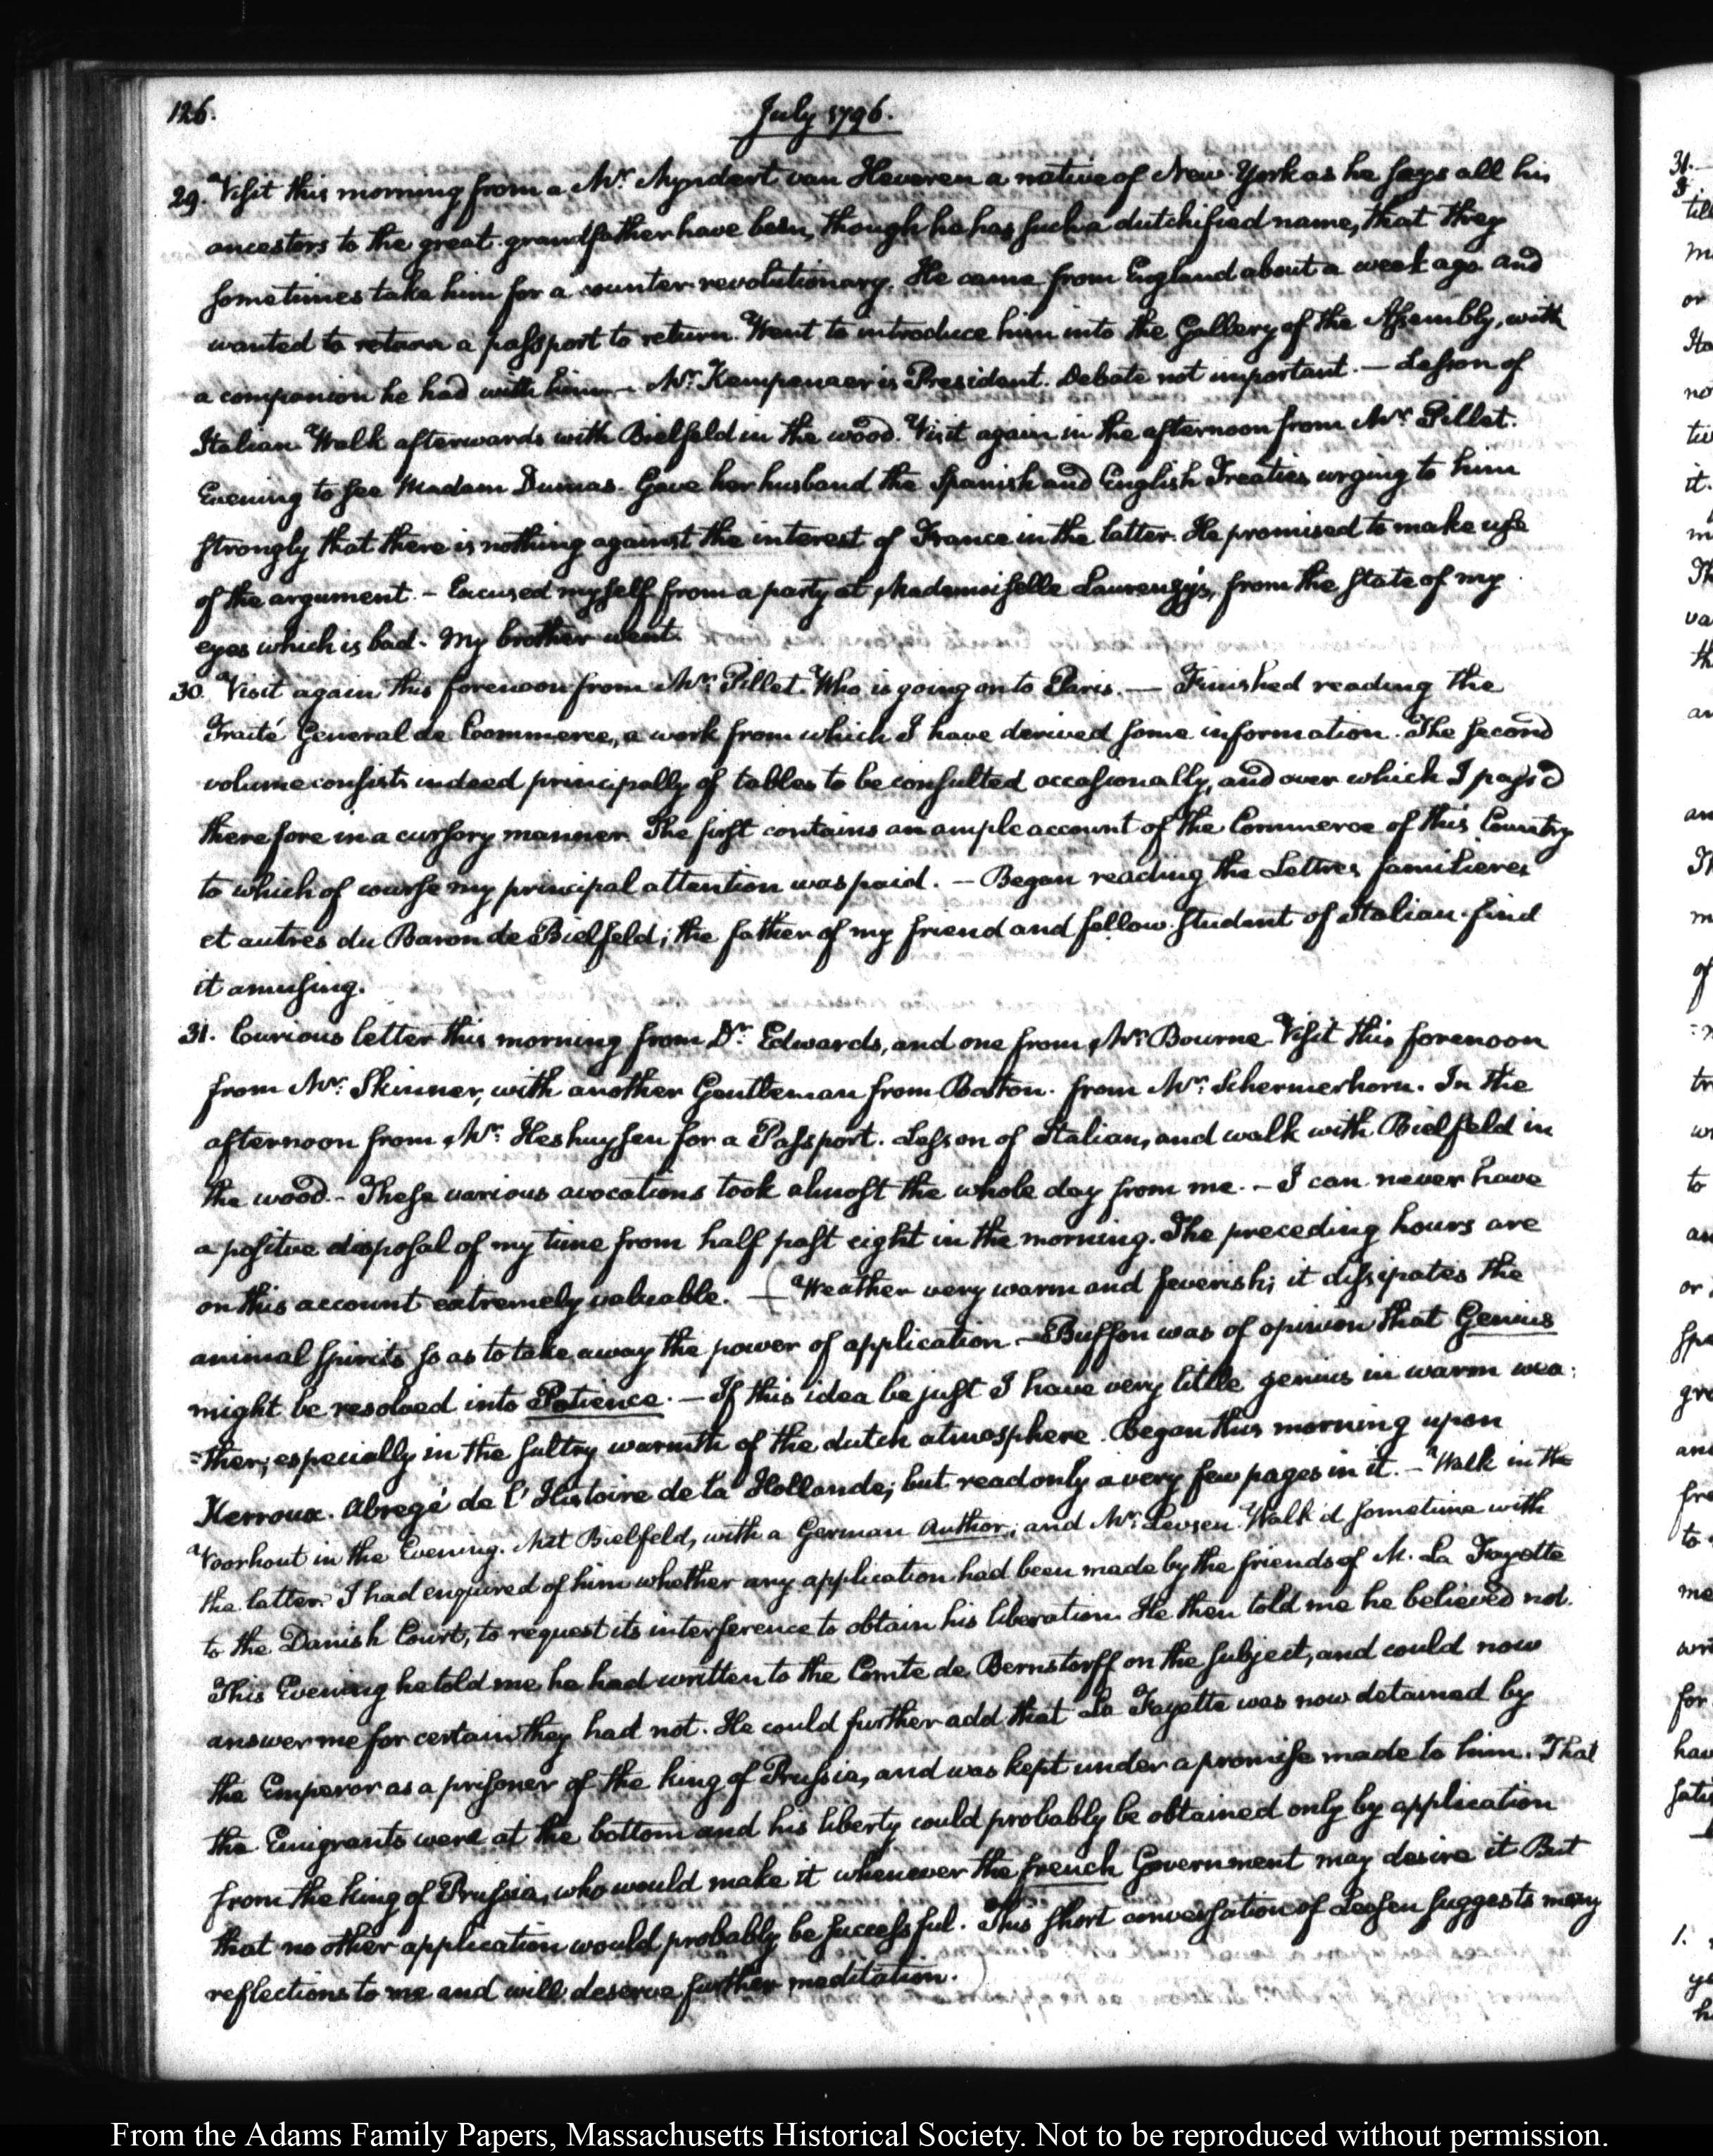 126.
July 1796.
29. Visit this morning from a Mr. Myndert van Heveren a native of New-York as he says all his
ancestors to the great-grandfather have been, though he has such a dutchified name, that they
sometimes take him for a counter-revolutionary. He came from England about a week ago and
wanted to return a passport to return. Went to introduce him into the Gallery of the Assembly, with
a companion he had with him — Mr. Kempenaer is President. Debate not important. — Lesson of
Italian Walk afterwards with Bielfeld in the wood. Visit again in the afternoon from Mr. Pillet.
Evening to see Madam Dumas. Gave her husband the Spanish and English Treaties urging to him
strongly that there is nothing against the interest of France in the latter. He promised to make use
of the argument. — Excused myself from a party at Mademoiselle Laurenzÿs, from the state of my
eyes which is bad. My brother went.
30. Visit again this forenoon from Mr. Pillet. Who is going on to Paris. — Finished reading the
Traité General de Commerce, a work from which I have derived some information. The second
volume consists indeed principally of tables to be consulted occasionally, and over which I pass'd
therefore in a cursory manner. The first contains an ample account of the Commerce of this Country
to which of course my principal attention was paid. — Began reading the Lettres familieres
et autres du Baron de Bielfeld; the father of my friend and fellow-student of Italian. find
it amusing.
31. Curious letter this morning from Dr. Edwards, and one from Mr. Bourne. Visit this forenoon
from Mr. Skinner, with another Gentleman from Boston. from Mr. Schermerhorn. In the
afternoon from Mr. Heshuysen for a Passport. Lesson of Italian, and walk with Bielfeld in
the wood. — These various avocations took almost the whole day from me. — I can never have
a positive disposal of my time from half past eight in the morning. The preceding hours are
on this account extremely valuable. — (Weather very warm and feverish; it dissipates the
animal spirits so as to take away the power of application. — Buffon was of opinion that Genius
might be resolved into Patience. — If this idea be just I have very little genius in warm wea:
=ther; especially in the sultry warmth of the dutch atmosphere. Began this morning upon
Kerroux. Abregé de l'Histoire de la Hollande; but read only a very few pages in it. — Walk in the
Voorhout in the Evening. Met Bielfeld, with a German Author; and Mr. Levsen. Walk'd sometime with
the latter. I had enquired of him whether any application had been made by the friends of M. La Fayette
to the Danish Court, to request its interference to obtain his liberation. He then told me he believed not.
This Evening he told me he had written to the Comte de Bernstorff on the subject, and could now
answer me for certain they had not. He could further add that La Fayette was now detained by
the Emperor as a prisoner of the king of Prussia, and was kept under a promise made to him. That
the Emigrants were at the bottom and his liberty could probably be obtained only by application
from the king of Prussia, who would make it whenever the french Government may desire it But
that no other application would probably be successful. This short conversation of Levsen suggests many
reflections to me and will deserve further meditation.)
From the Adams Family Papers, Massachusetts Historical Society. Not to be reproduced without permission.